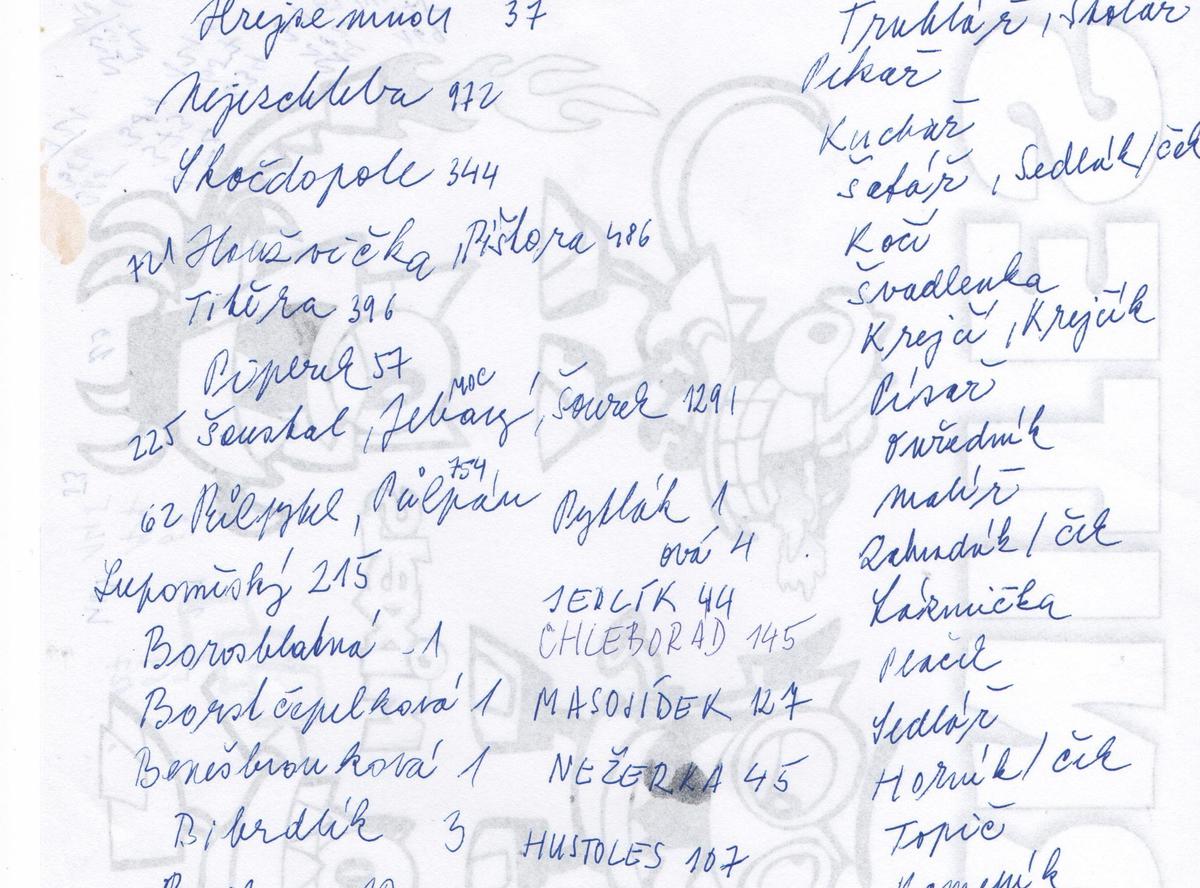 Hrejsemnou 37
Nejezchleba 972
Skočdopole 344
721 Houžvička, Pištora 486
Titěra 396
Piperek 57
moc
225 Šoustal, Jebavý, Šourek 1291
754
62 Půlpytel, Půlpán
Lupoměský 215
Borosblatná - 1
Borstčapelková 1
Benešbrouková 1
Bibrdlík 3
Pytlák 1
ová 4
JEDLÍK 44
CHLEBORÁD 145
MASOJÍDEK 127
NEŽERKA 45
HUSTOLES 107
Truhlář, Školař
Pekař
Kuchař
Šafář, Sedlák/ček
Kočí
Švadlenka
Krejčí, Krejčík
Písař
Ouředník
Malíř
Zahradník/ček
Láznička
Plačil
Sedlář
Horník/ček
Topič
Kameník